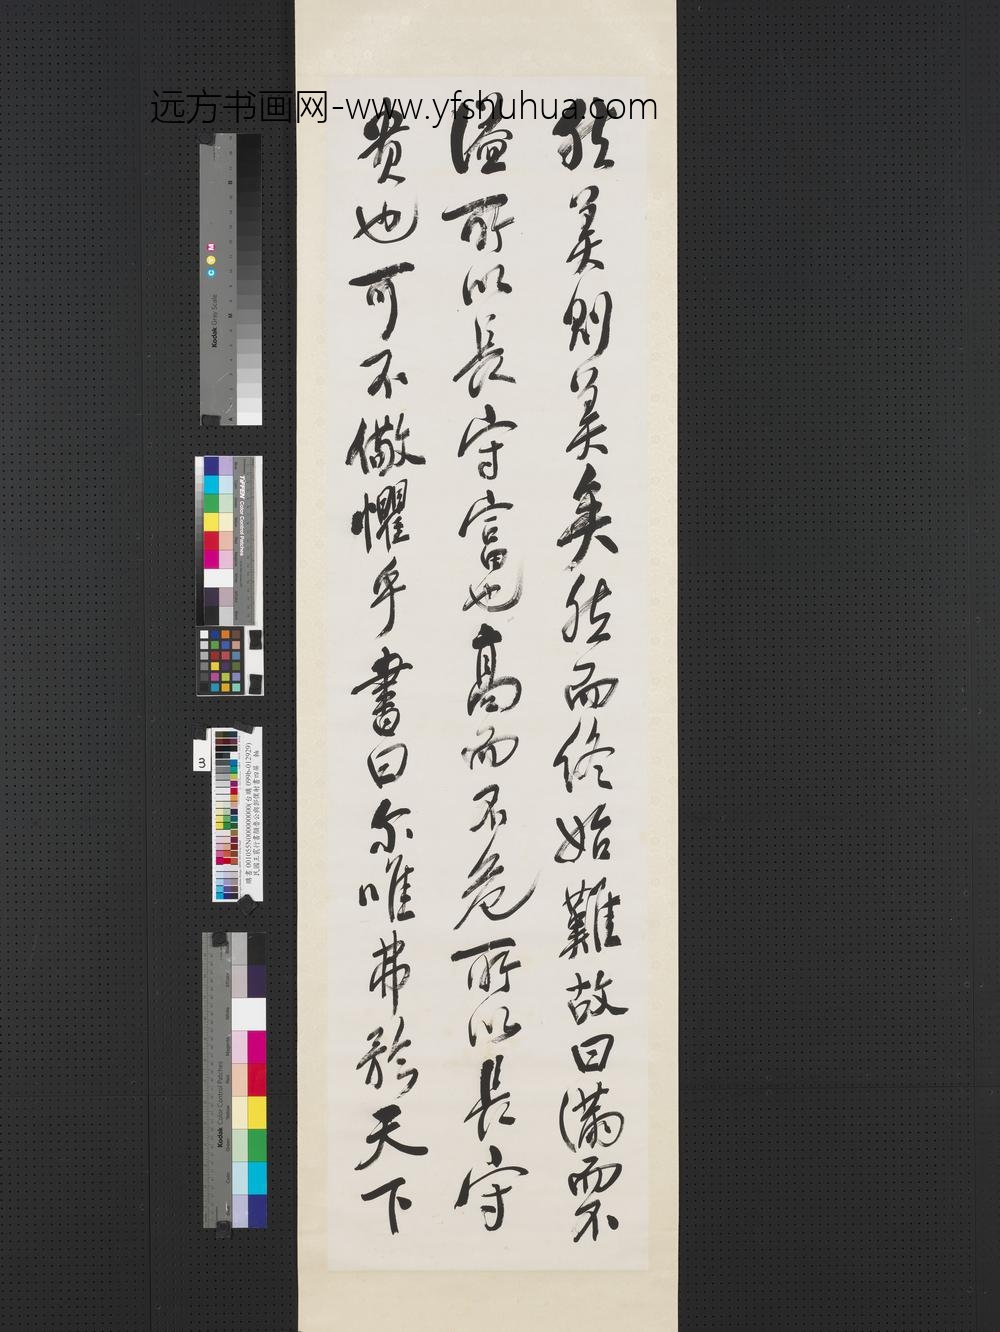 远方书画网-www.yfshuhua.com
然美則美矣然而終始難故曰滿而不
溢所以長守富也高而不危所以長守
貴也可不儆懼乎書曰尔唯弗矜天下
Kodak Gray Scale
C Y M
TIFFEN Color Control Patches
3
Kodak Color Control Patches